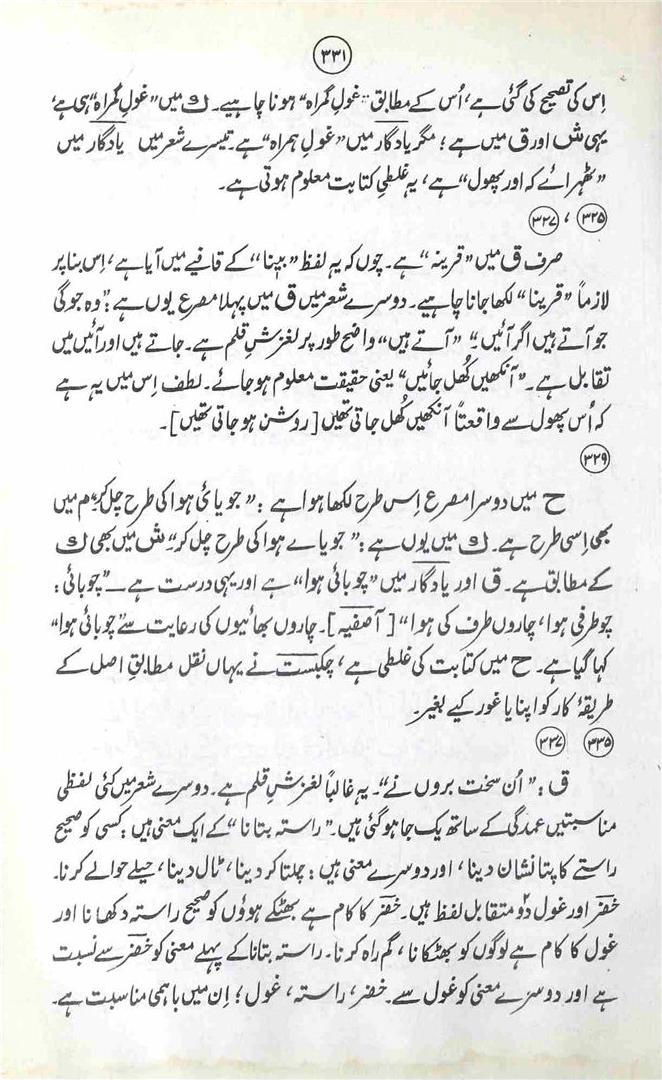 ۳۳۱
اِس کی تصحیح کی گئی ہے، اُس کے مطابق "غولِ گمراہ" ہونا چاہیے۔ ک میں "غولِ گمراہ" ہی ہے،
یہی ش اور ق میں ہے؛ مگر یادگار میں "غولِ ہمراہ" ہے۔ تیسرے شعر میں یادگار میں
"ٹھہرائے کہ اور پھول" ہے، یہ غلطیِ کتابت معلوم ہوتی ہے۔
۳۲۵ ، ۳۲۷
صرف ق میں "قرینہ" ہے۔ چوں کہ یہ لفظ "بینا" کے قافیے میں آیا ہے، اِس بنا پر
لازماً "قرینا" لکھا جانا چاہیے۔ دوسرے شعر میں ق میں پہلا مصرع یوں ہے: "وہ جو گی
جو آتے ہیں اگر آئیں"۔ "آتے ہیں" واضح طور پر لغزشِ قلم ہے۔ جاتے ہیں اور آئیں میں
تقابل ہے۔ "آنکھیں کُھل جائیں" یعنی حقیقت معلوم ہو جائے۔ لطف اِس میں یہ ہے
کہ اُس پھول سے واقعتاً آنکھیں کُھل جاتی تھیں [روشن ہو جاتی تھیں]۔
۳۲۹
ح میں دوسرا مصرع اِس طرح لکھا ہوا ہے: "جو یائ ہوا کی طرح چل کر"، م میں
بھی اِسی طرح ہے۔ ک میں یوں ہے: "جویاے ہوا کی طرح چل کر" ش میں بھی ک
کے مطابق ہے۔ ق اور یادگار میں "چوبائی ہوا" ہے اور یہی درست ہے۔ "چوبائی:
چوطرفی ہوا، چاروں طرف کی ہوا" [آصفیہ]۔ چاروں بھائیوں کی رعایت سے "چوبائی ہوا"
کہا گیا ہے۔ ح میں کتابت کی غلطی ہے، چکبست نے یہاں نقل مطابقِ اصل کے
طریقۂ کار کو اپنایا غور کیے بغیر۔
۳۳۵ ۳۳۷
ق: "اُن سخت بروں نے"۔ یہ غالباً لغزشِ قلم ہے۔ دوسرے شعر میں کئی لفظی
مناسبتیں عمدگی کے ساتھ یک جا ہو گئی ہیں۔ "راستہ بتانا" کے ایک معنی ہیں: کسی کو صحیح
راستے کا پتا نشان دینا، اور دوسرے معنی ہیں: چلتا کر دینا، ٹال دینا، حیلے حوالے کرنا۔
خضر اور غول دو متقابل لفظ ہیں۔ خضر کا کام ہے بھٹکے ہوؤں کو صحیح راستہ دکھانا اور
غول کا کام ہے لوگوں کو بھٹکانا، گم راہ کرنا۔ راستہ بتانا کے پہلے معنی کو خضر سے نسبت
ہے اور دوسرے معنی کو غول سے۔ خضر، راستہ، غول؛ اِن میں باہمی مناسبت ہے۔